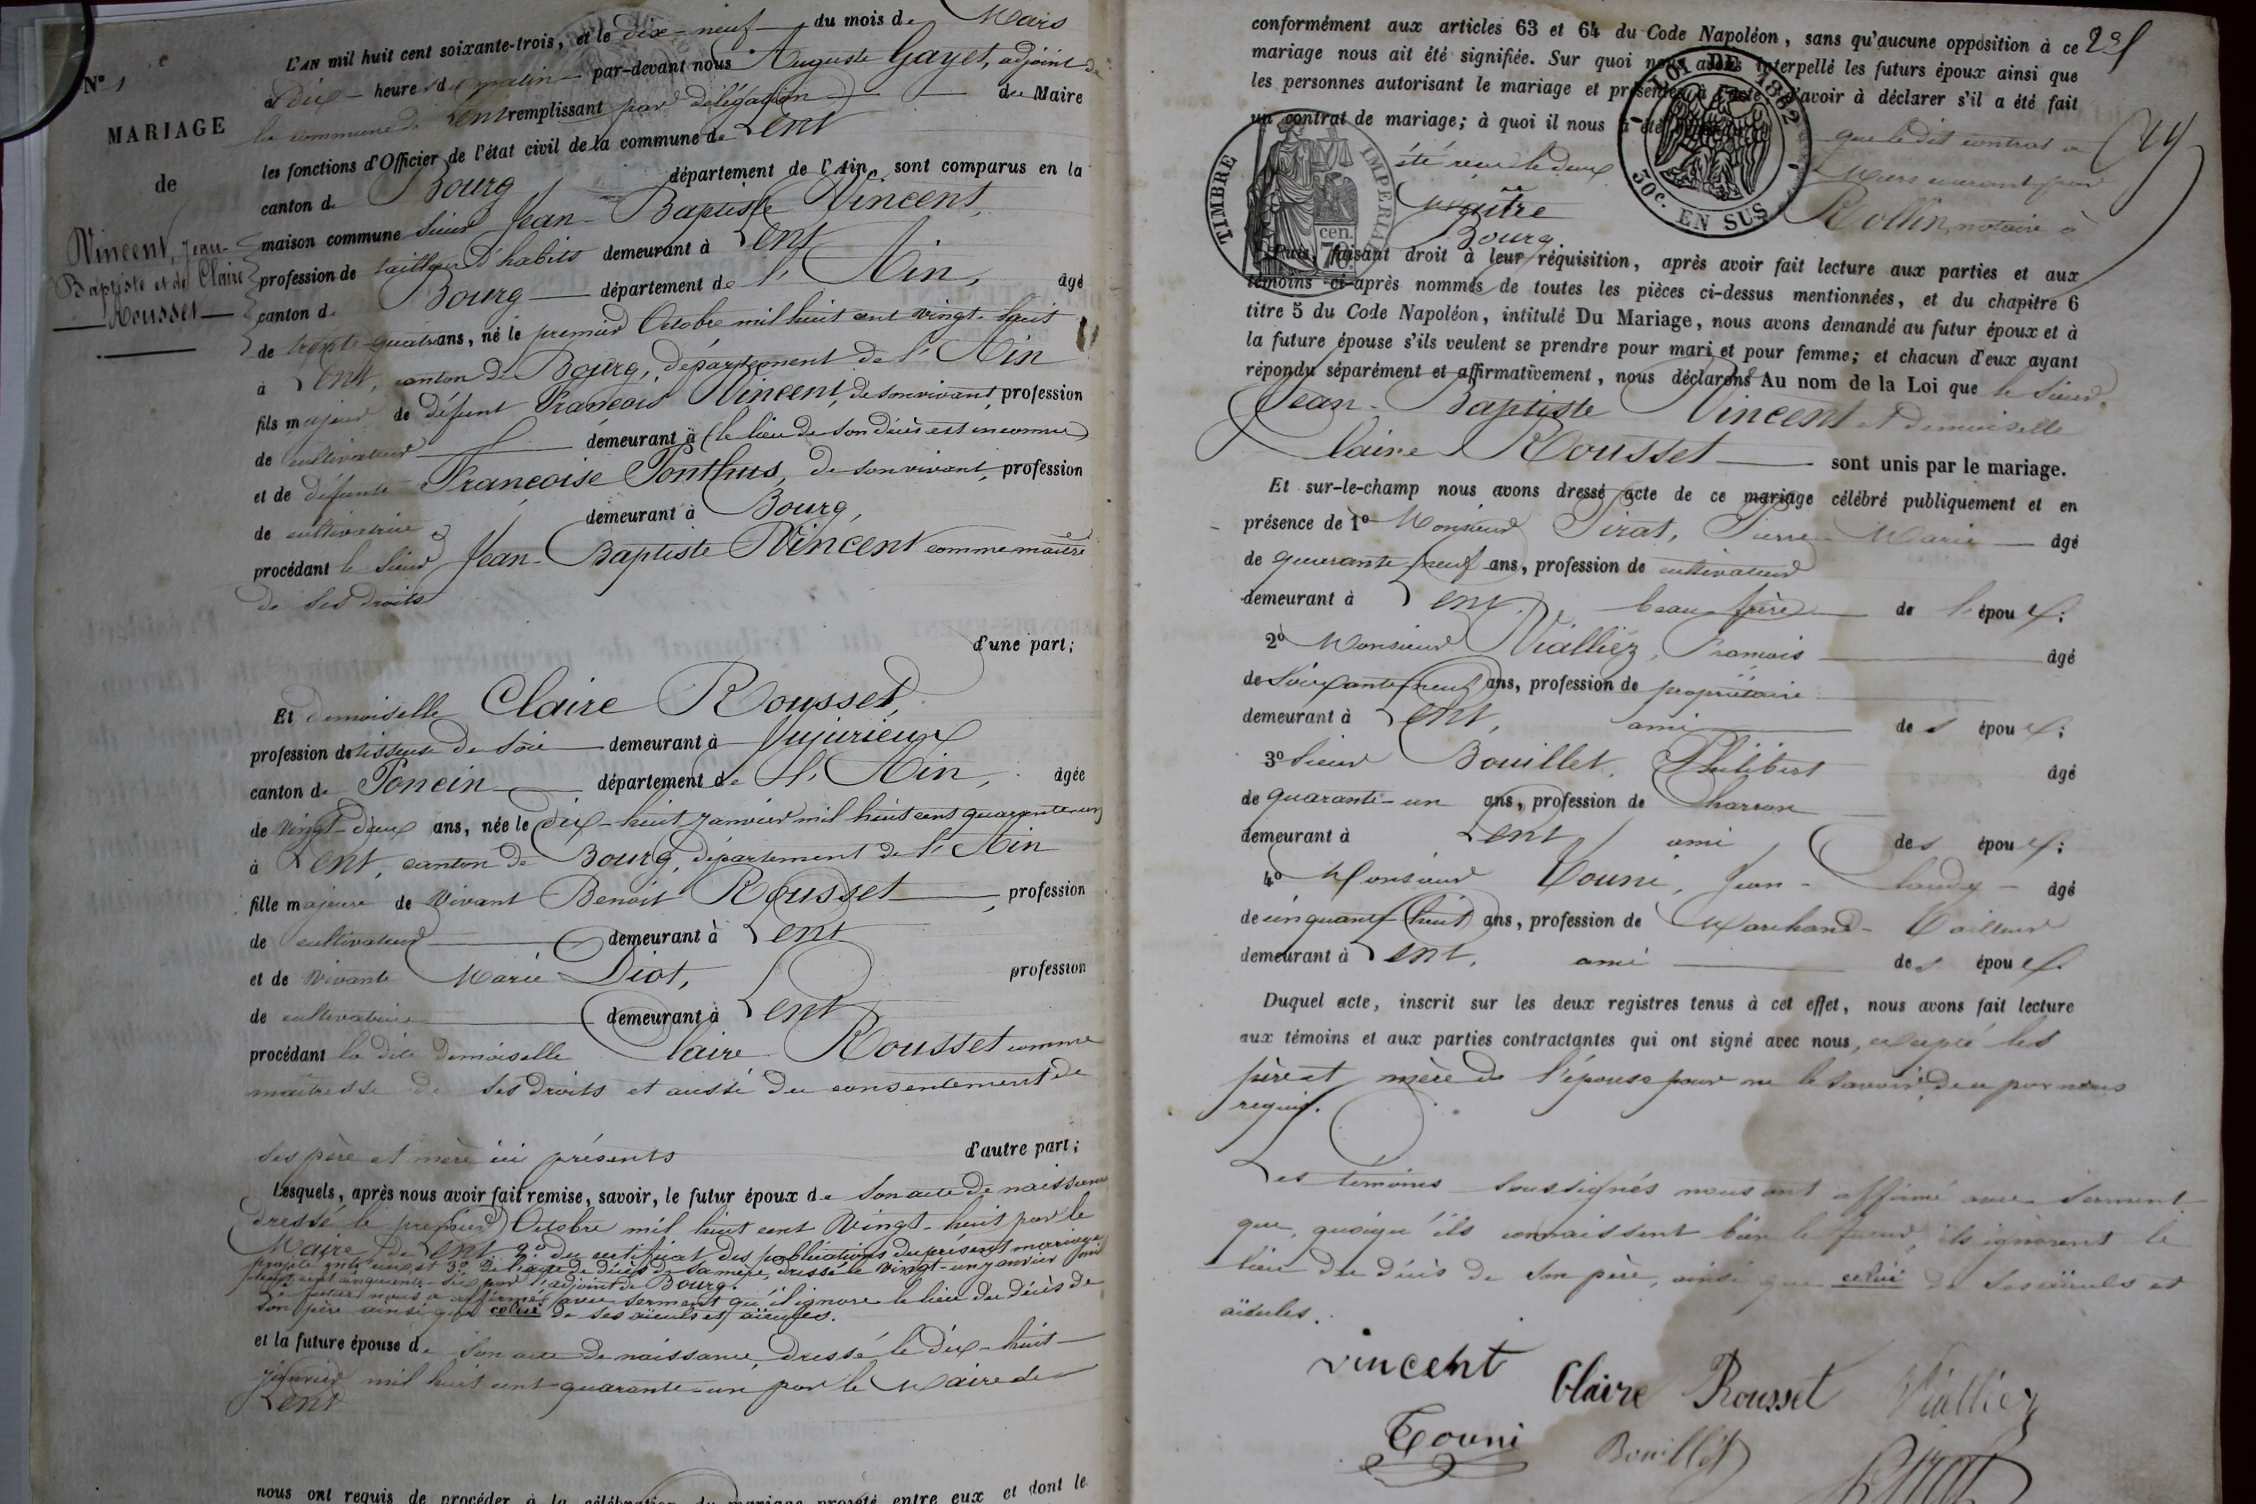 N° 1
MARIAGE
de
Vincent, Jean-
Baptiste et de Claire
Rousset
L'AN mil huit cent soixante-trois, et le dix-neuf du mois de Mars
à Dix heures du matin par-devant nous Auguste Gayet, adjoint de
la commune de Lent remplissant par délégation du Maire
les fonctions d'Officier de l'état civil de la commune de Lent
canton de Bourg département de l'Ain, sont comparus en la
maison commune Sieur Jean-Baptiste Vincent,
profession de tailleur d'habits demeurant à Lent
canton de Bourg département de l'Ain, âgé
de trente-quatre ans, né le premier Octobre mil huit cent vingt-huit
à Lent, canton de Bourg, département de l'Ain
fils majeur de défunt François Vincent, de son vivant, profession
de cultivateur demeurant à (le lieu de son décès est inconnu)
et de défunte Françoise Ponthus, de son vivant, profession
de cultivatrice demeurant à Bourg,
procédant le Sieur Jean-Baptiste Vincent comme maître
de ses droits
d'une part;
Et demoiselle Claire Rousset,
profession de tisseuse de soie demeurant à Jujurieux
canton de Poncin département de l'Ain, âgée
de vingt-deux ans, née le dix-huit janvier mil huit cent quarante-un
à Lent, canton de Bourg, département de l'Ain
fille majeure de vivant Benoit Rousset, profession
de cultivateur demeurant à Lent
et de vivante Marie Diot, profession
de cultivatrice demeurant à Lent
procédant la dite demoiselle Claire Rousset comme
maîtresse de ses droits et aussi du consentement de
ses père et mère ici présents d'autre part;
Lesquels, après nous avoir fait remise, savoir, le futur époux de son acte de naissance
dressé le premier Octobre mil huit cent vingt-huit par le
Maire de Lent 2° du certificat des publications du présent mariage
projeté entre eux et 3° de l'acte de décès de sa mère, dressé le vingt-un janvier mil
huit cent cinquante-six par l'adjoint de Bourg.
Le futur nous a affirmé avec serment qu'il ignore le lieu du décès de
son père ainsi que celui de ses aïeuls et aïeules.
et la future épouse de son acte de naissance dressé le dix-huit
janvier mil huit cent quarante-un par le Maire de
Lent
nous ont requis de procéder à la célébration du mariage projeté entre eux et dont le
conformément aux articles 63 et 64 du Code Napoléon, sans qu'aucune opposition à ce
mariage nous ait été signifiée. Sur quoi nous avons interpellé les futurs époux ainsi que
les personnes autorisant le mariage et présentes à l'acte d'avoir à déclarer s'il a été fait
un contrat de mariage; à quoi il nous a été que le dit contrat a
été reçu le deux Mars courant par
maître Rollin, notaire à
Bourg
TIMBRE IMPERIAL
70 cen.
LOI DE 1862
50c. EN SUS
Puis, faisant droit à leur réquisition, après avoir fait lecture aux parties et aux
témoins ci-après nommés de toutes les pièces ci-dessus mentionnées, et du chapitre 6
titre 5 du Code Napoléon, intitulé Du Mariage, nous avons demandé au futur époux et à
la future épouse s'ils veulent se prendre pour mari et pour femme; et chacun d'eux ayant
répondu séparément et affirmativement, nous déclarons Au nom de la Loi que le Sieur
Jean-Baptiste Vincent et Demoiselle
Claire Rousset sont unis par le mariage.
Et sur-le-champ nous avons dressé acte de ce mariage célébré publiquement et en
présence de 1° Monsieur Pirat, Pierre Marie âgé
de quarante-neuf ans, profession de cultivateur
demeurant à Lent, beau-frère de l'époux;
2° Monsieur Vialliez, François âgé
de soixante-neuf ans, profession de propriétaire
demeurant à Lent, ami des époux;
3° Sieur Bouillet, Philibert âgé
de quarante-un ans, profession de Charron
demeurant à Lent ami des époux;
4° Monsieur Touni, Jean-Claude âgé
de cinquante-huit ans, profession de Marchand-Tailleur
demeurant à Lent, ami des époux.
Duquel acte, inscrit sur les deux registres tenus à cet effet, nous avons fait lecture
aux témoins et aux parties contractantes qui ont signé avec nous, excepté les
père et mère de l'épouse pour ne le savoir, de ce par nous
requis.
Les témoins soussignés nous ont affirmé avec serment
que, quoiqu'ils connaissent bien le futur, ils ignorent le
lieu du décès de son père, ainsi que celui de ses aïeuls et
aïeules.
Vincent
Claire Rousset Vialliez
Touni Bouillet Pirat